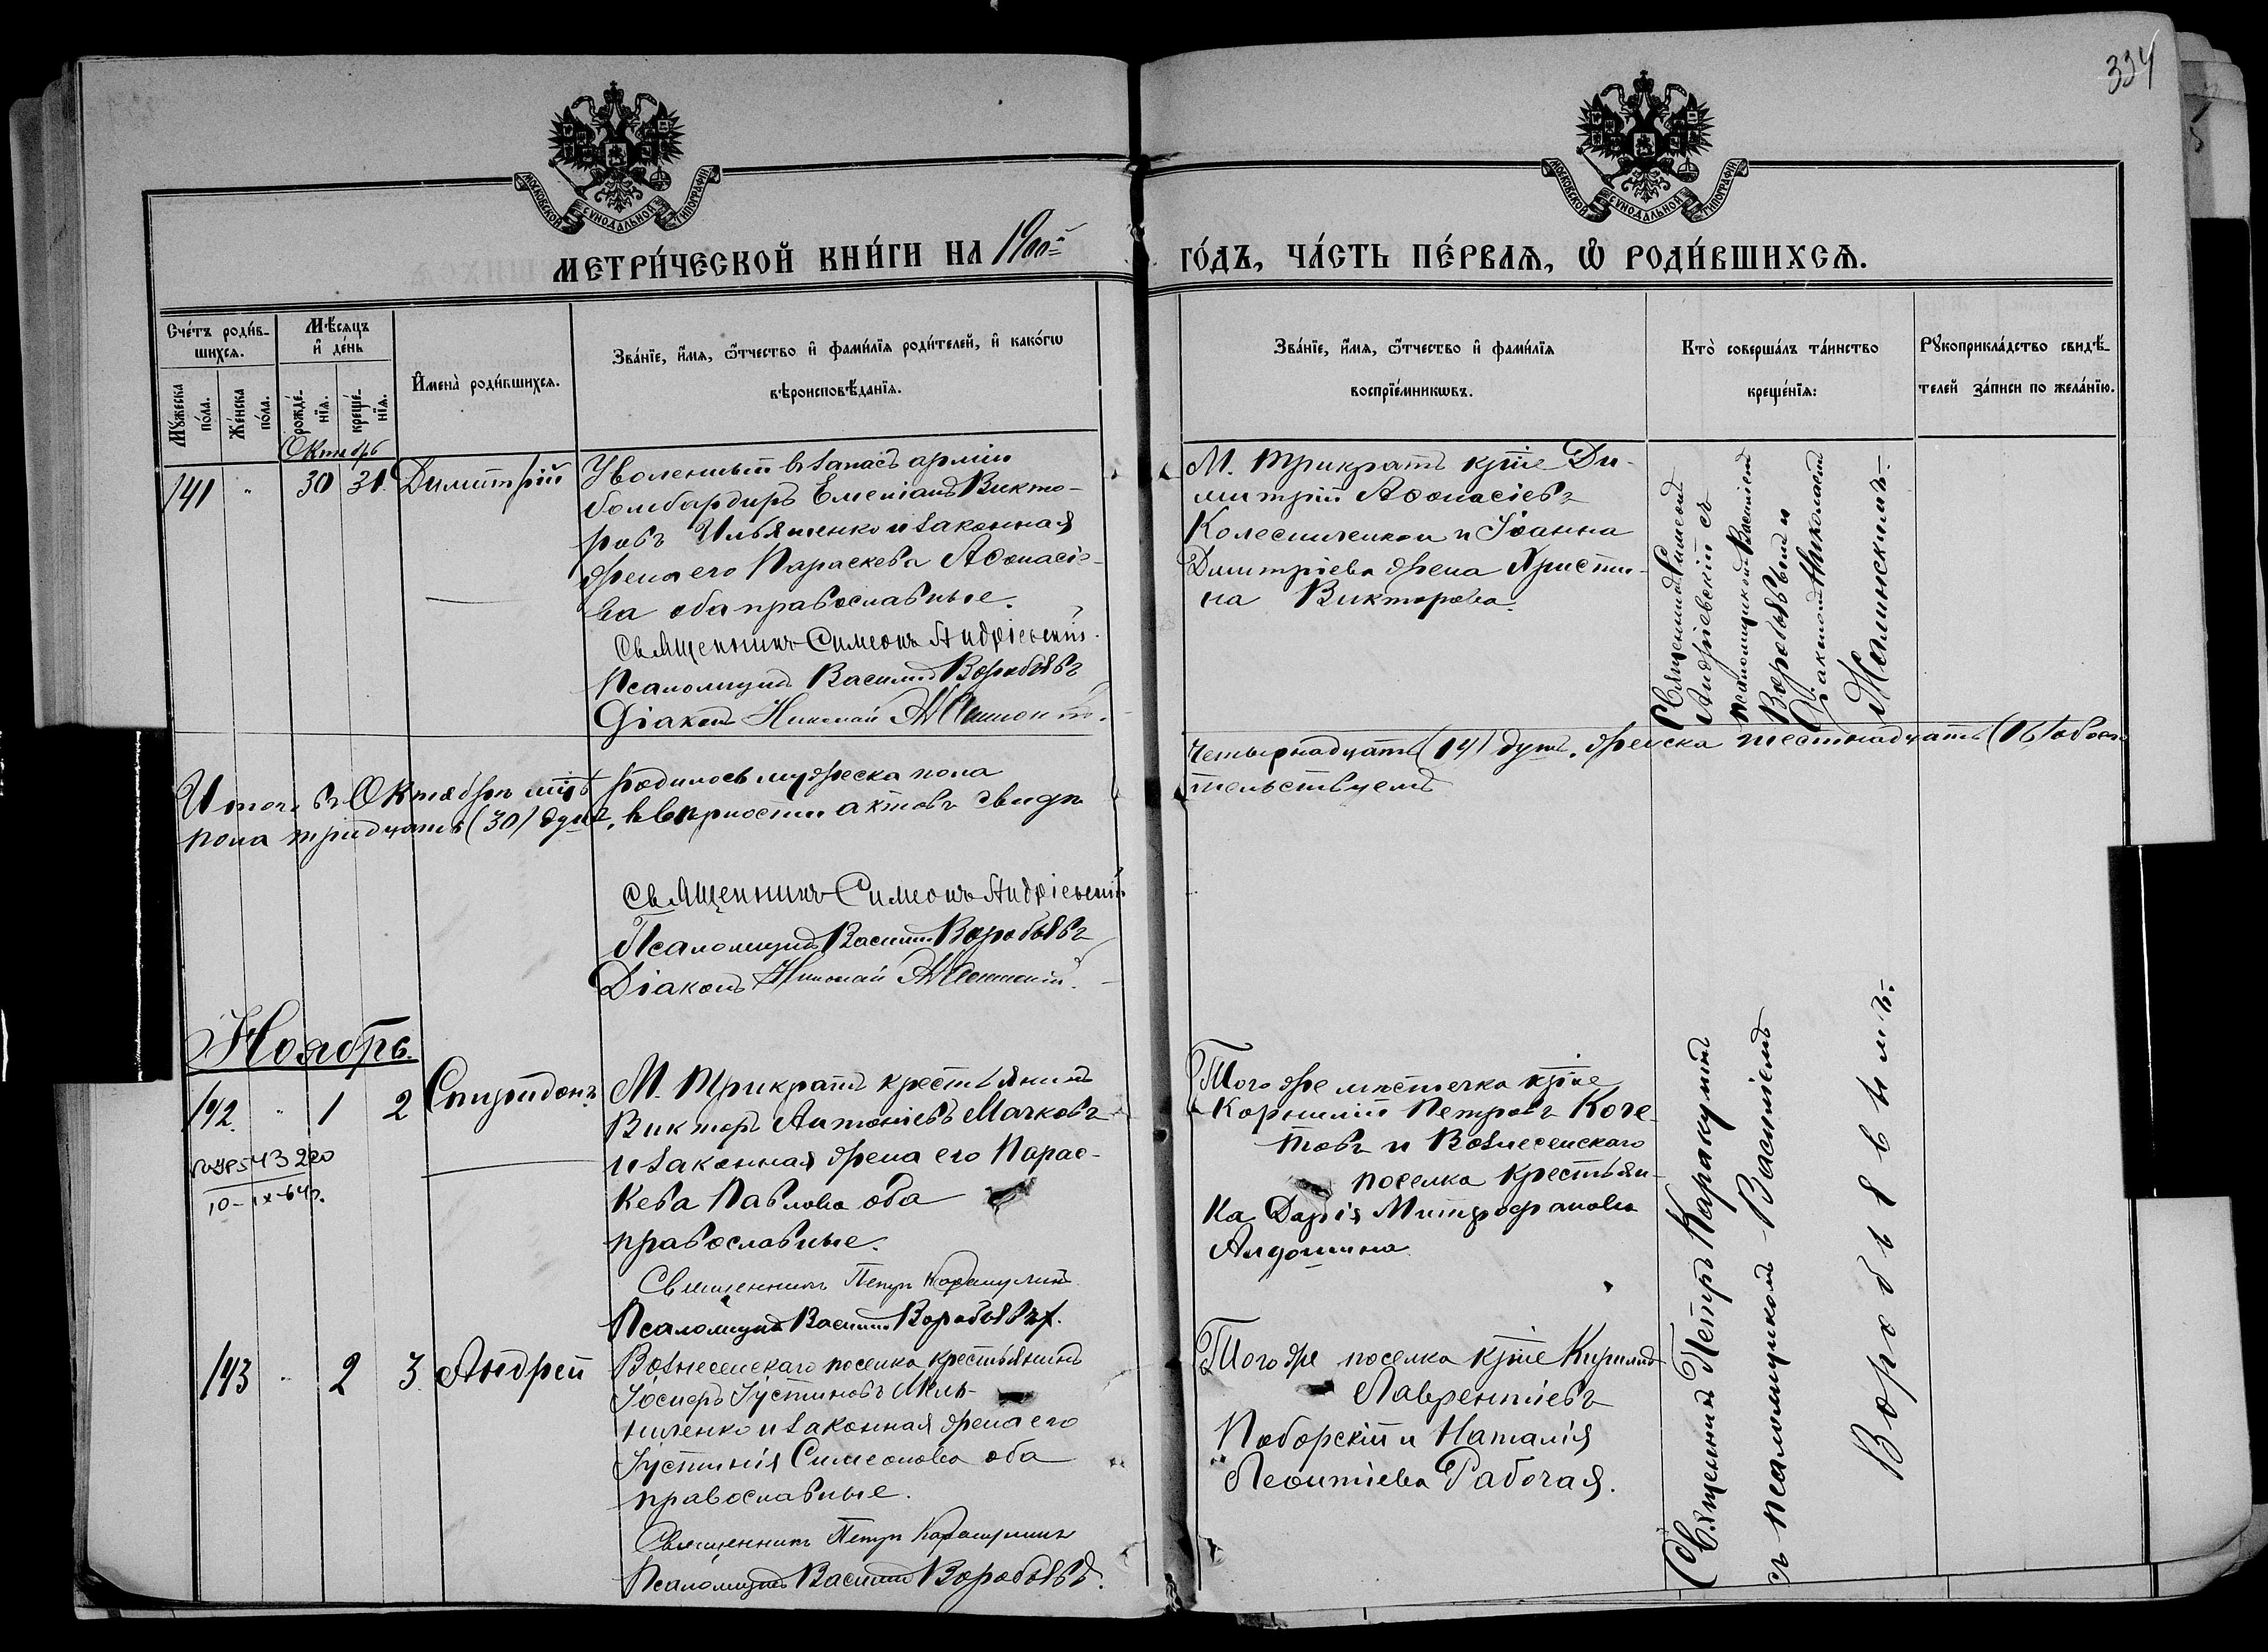 334
МОСКОВСКОЙ СѴНОДАЛЬНОЙ ТИПОГРАФІИ
МОСКОВСКОЙ СѴНОДАЛЬНОЙ ТИПОГРАФІИ
МЕТРИ́ЧЕСКОЙ КНИ́ГИ НА 1900й
ГО́ДЪ, ЧА́СТЬ ПЕ́РВАѦ, Ѡ҆ РОДИ́ВШИХСѦ.
Сче́тъ роди́в-
шихсѧ.
Мꙋ́жеска по́ла.
Же́нска по́ла.
Мѣ́сѧцъ
и҆ де́нь
рожде́-
нїѧ.
креще́-
нїѧ.
И҆мена̀ роди́вшихсѧ.
Зва́нїе, и҆́мѧ, ѻ҆́тчество и҆ фами́лїѧ роди́телей, и҆ како́гѡ
вѣроисповѣ́данїѧ.
Зва́нїе, и҆́мѧ, ѻ҆́тчество и҆ фами́лїѧ
воспрїе́мникѡвъ.
Кто̀ соверша́лъ та́инство
креще́нїѧ:
Рꙋкоприкла́дство свидѣ́-
телей за́писи по жела́нїю.
Октябрь
141 " 30 31. Димитрій
Уволенный въ запасъ арміи
бомбардиръ Емеліанъ Викто-
ровъ Ильяшенко и законная
жена его Параскева Аѳонасіе-
ва оба православные.
Священникъ Симеонъ Андріевскій.
Псаломщикъ Василій Воробьевъ
Діаконъ Николай
М. Трикратъ кр̃не Ди-
митрій Аѳонасіевъ
Колесниченко и Іоанна
Димитріева жена Христи-
на Викторова.
Священникъ Симеонъ
Андріевскій съ
псаломщикомъ Василіемъ
Воробьевымъ и
Діакономъ Николаемъ
Итого въ Октябрѣ м̃цѣ родилось мужеска пола
Четырнадцать (14) душъ, женска шестнадцать (16) обоего
пола тридцать (30) душъ, въ вѣрности актовъ свидѣ-
тельствуемъ
Священникъ Симеонъ Андріевскій
Псаломщикъ Василій Воробьевъ
Діаконъ Николай
Ноябрь.
142. " 1 2 Спиридонъ
10-IX-64г.
М. Трикратъ крестьянинъ
Викторъ Антоніевъ Мачковъ
и законная жена его Парас-
кева Павлова оба
православные.
Священникъ Петръ Каракулинъ
Псаломщикъ Василій Воробьевъ.
Того же мѣстечка кр̃не
Корнилій Петровъ Коче-
товъ и Вознесенскаго
поселка крестьян-
ка Дарія Митрофанова
Алдошина
143 " 2 3. Андрей
Вознесенскаго поселка крестьянинъ
Іосифъ Іустиновъ Мель-
ниченко и законная жена его
Іустинія Симеонова оба
православные.
Священникъ Петръ Каракулинъ
Псаломщикъ Василій Воробьевъ.
Того же поселка кр̃не Кириллъ
Лаврентіевъ
Поборскій и Наталія
Леонтіева Рабочая.
Священникъ Петръ Каракулинъ
съ псаломщикомъ Василіемъ
Воробьевымъ.